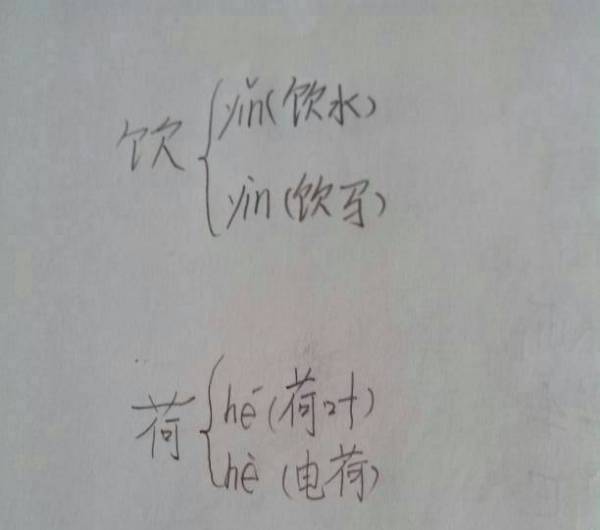 饮 { yǐn(饮水)
yìn (饮马)
荷 { hé (荷叶)
hè (电荷)